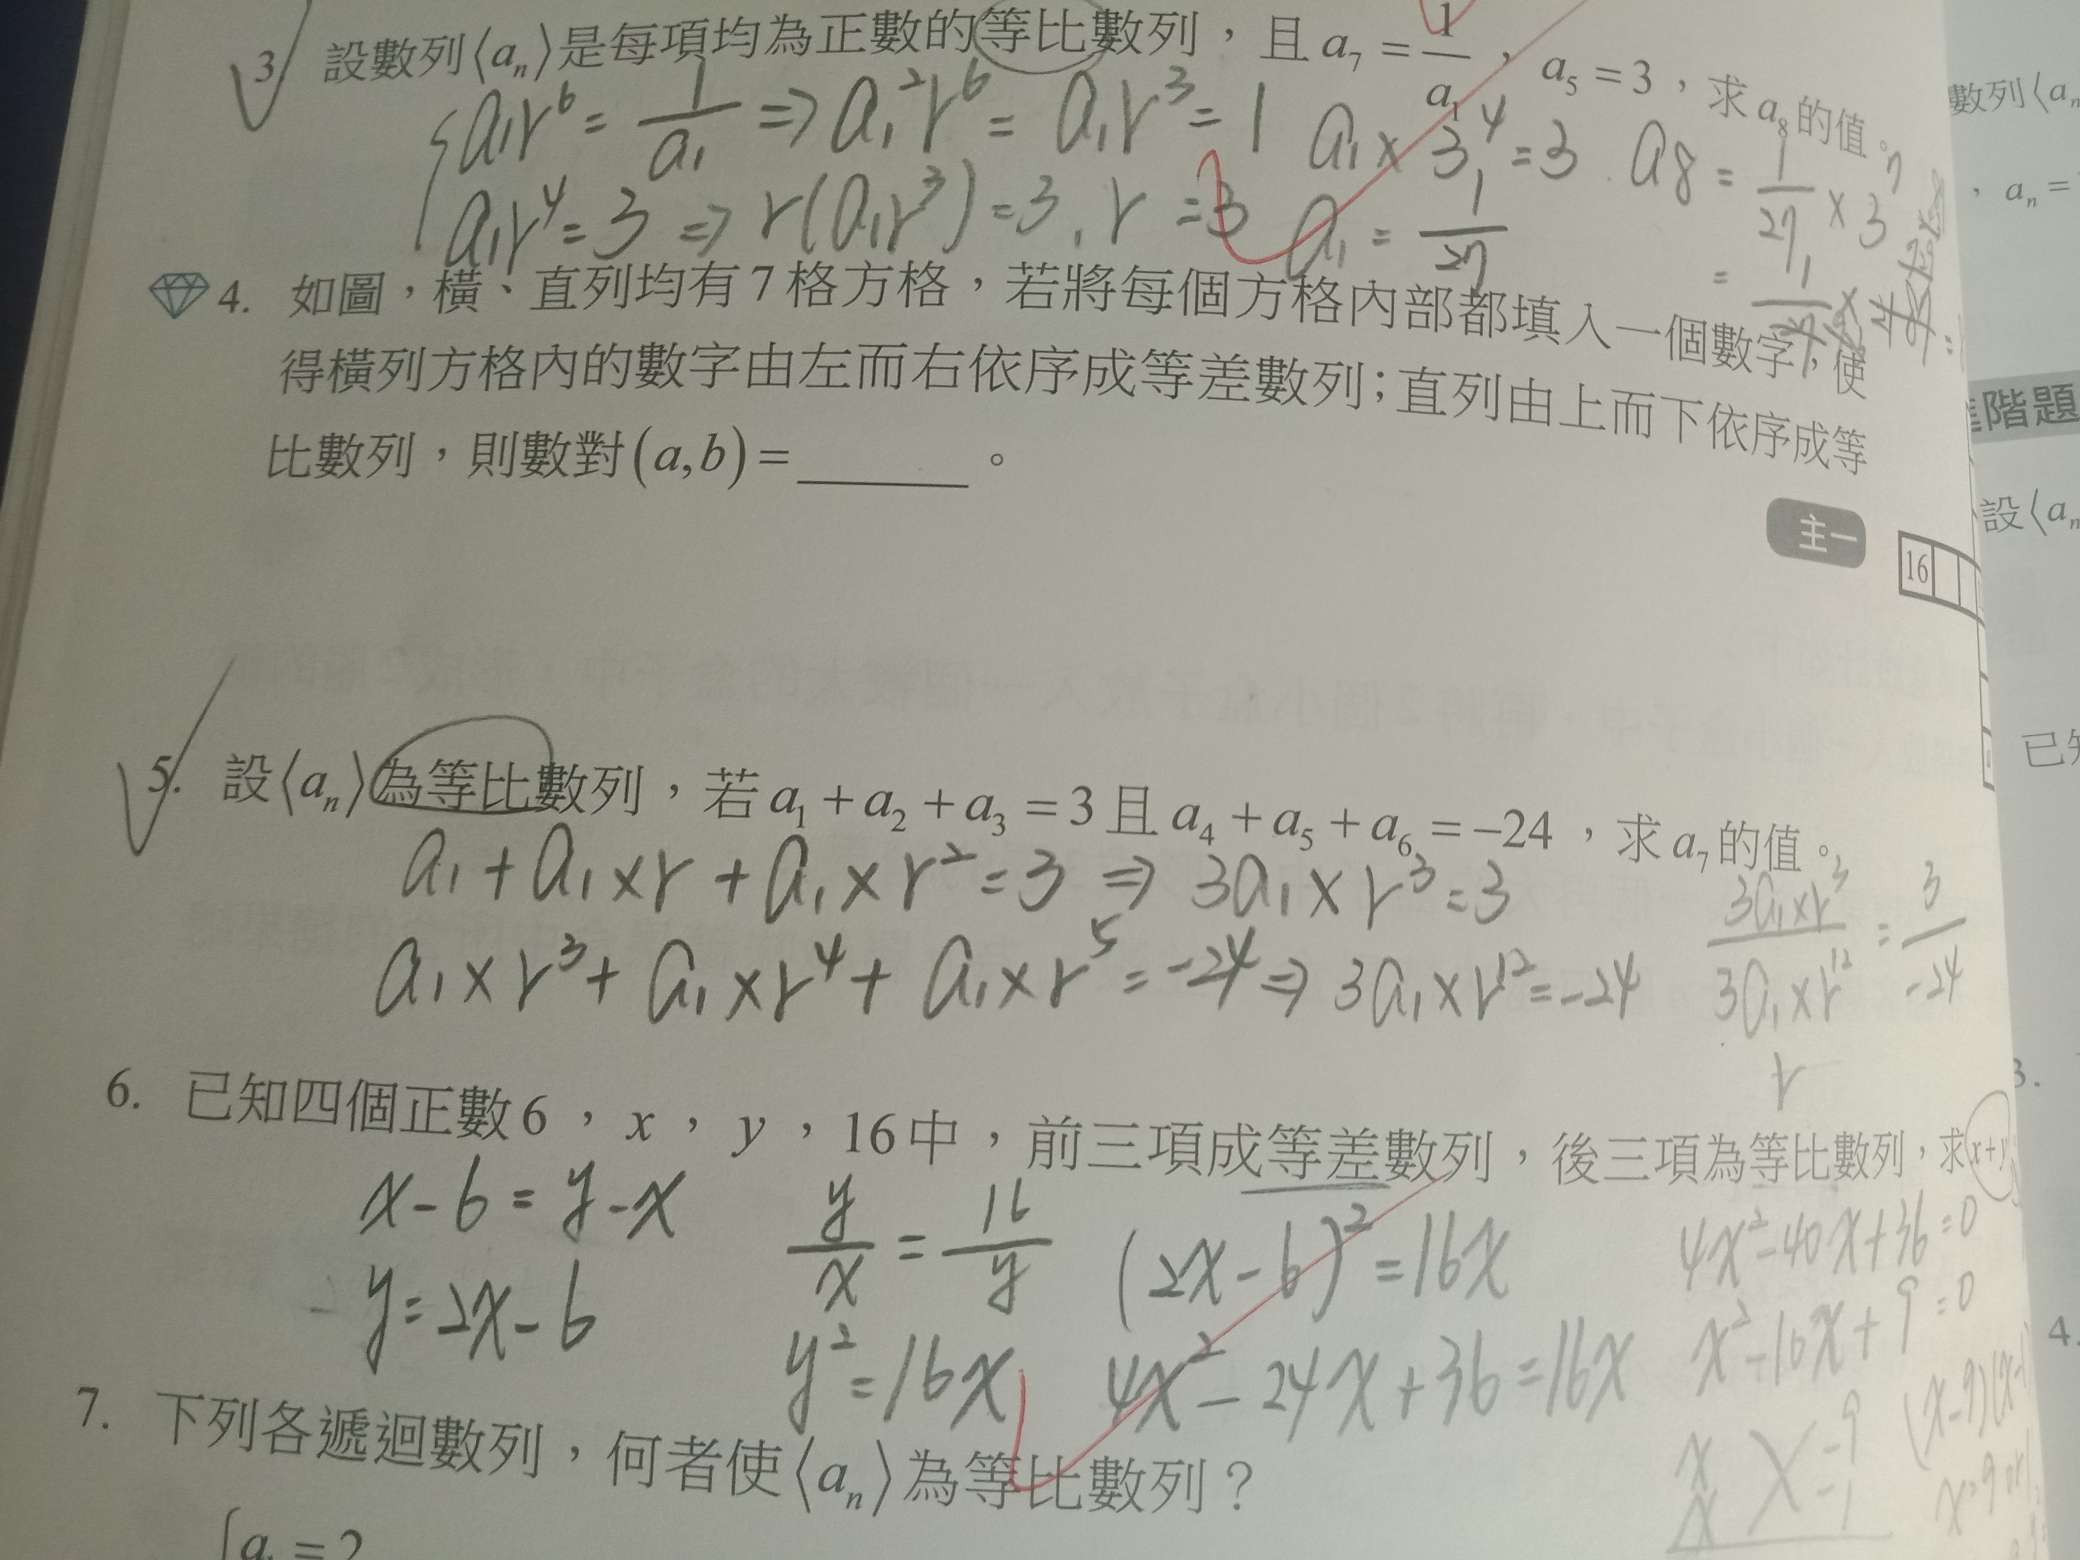 3. 設數列⟨aₙ⟩是每項均為正數的等比數列,且a₇=1/a₁,a₅=3,求a₈的值。
a₁r⁶=1/a₁⇒a₁²r⁶=a₁r³=1 a₁×3⁴=3 a₈=1/27×3⁷
a₁r⁴=3⇒r(a₁r³)=3, r=3 a₁=1/27
4. 如圖,橫、直列均有7格方格,若將每個方格內部都填入一個數字,使
得橫列方格內的數字由左而右依序成等差數列;直列由上而下依序成等
比數列,則數對(a,b)=______。
主一
16
5. 設⟨aₙ⟩為等比數列,若a₁+a₂+a₃=3且a₄+a₅+a₆=−24,求a₇的值。
a₁+a₁×r+a₁×r²=3⇒3a₁×r³=3
a₁×r³+a₁×r⁴+a₁×r⁵=-24⇒3a₁×r¹²=-24
3a₁×r³/3a₁×r¹²=3/-24
r
6. 已知四個正數6,x,y,16中,前三項成等差數列,後三項為等比數列,求x+y
x-6=y-x y/x=16/y (2x-6)²=16x 4x²-40x+36=0
y=2x-6 y²=16x 4x²-24x+36=16x x²-10x+9=0
x -9
x -1
7. 下列各遞迴數列,何者使⟨aₙ⟩為等比數列?
數列⟨aₙ
,aₙ=
階題
設⟨aₙ
已知
3.
4.